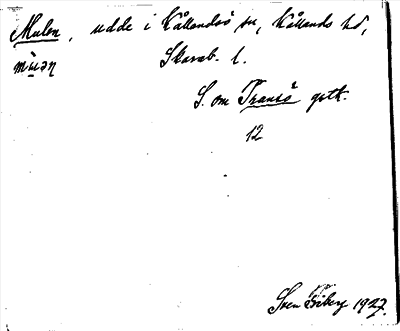 Mulen, udde i Kållandsö sn, Kållands hd,
mùəη Skarab. l.
S. om Transö gstk.
12
Sven Friberg 1927.